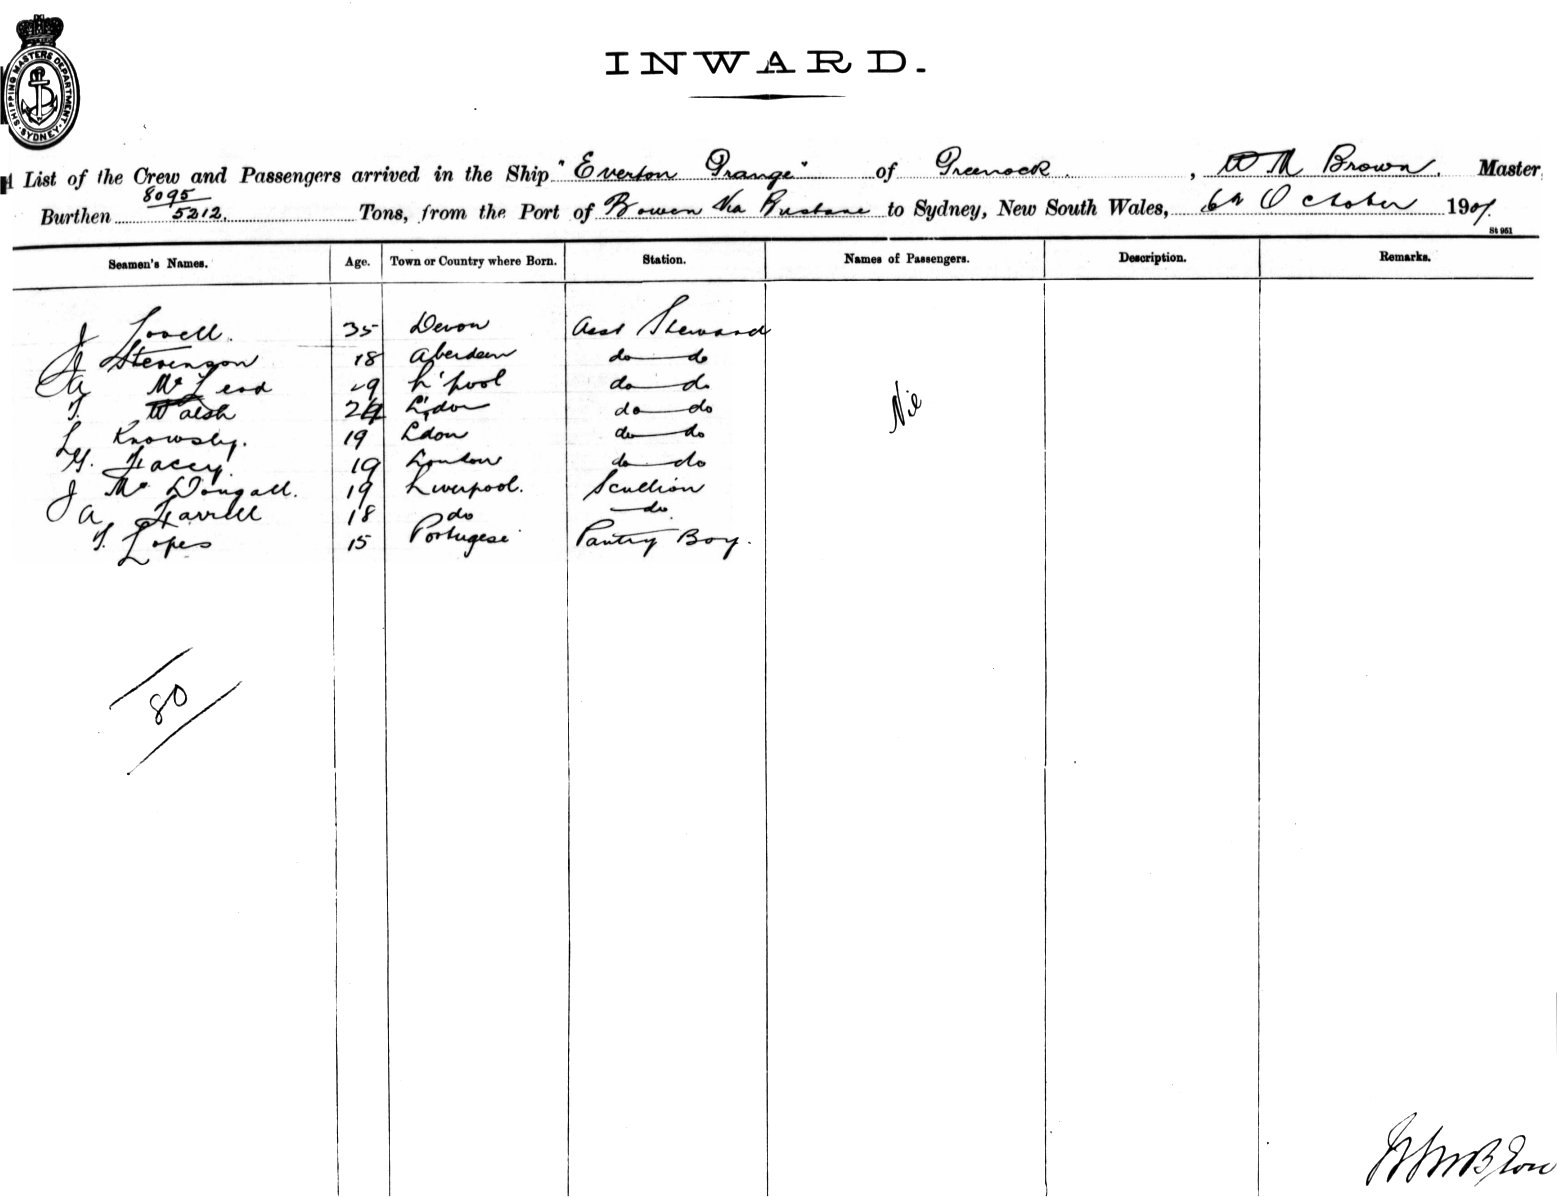 SHIPPING MASTERS DEPARTMENT SYDNEY
INWARD.
A List of the Crew and Passengers arrived in the Ship "Everton Grange" of Greenock, W M Brown. Master,
Burthen 8095 / 5212. Tons, from the Port of Bowen Via Brisbane to Sydney, New South Wales, 6th October 1907.
St 961
Seamen's Names. Age. Town or Country where Born. Station. Names of Passengers. Description. Remarks.
J Lovell. 35 Devon Asst Steward
J Stevenson 18 Aberdeen do do
A McLeod 19 L'pool do do
T. Walsh 24 L'don do do
L Knowsly. 19 Ldon do do
G. Facey. 19 London do do
J Mc Dougall. 19 Liverpool. Scullion
A Farrell 18 do do
T. Lopes 15 Portugese Pantry Boy.
Nil
80